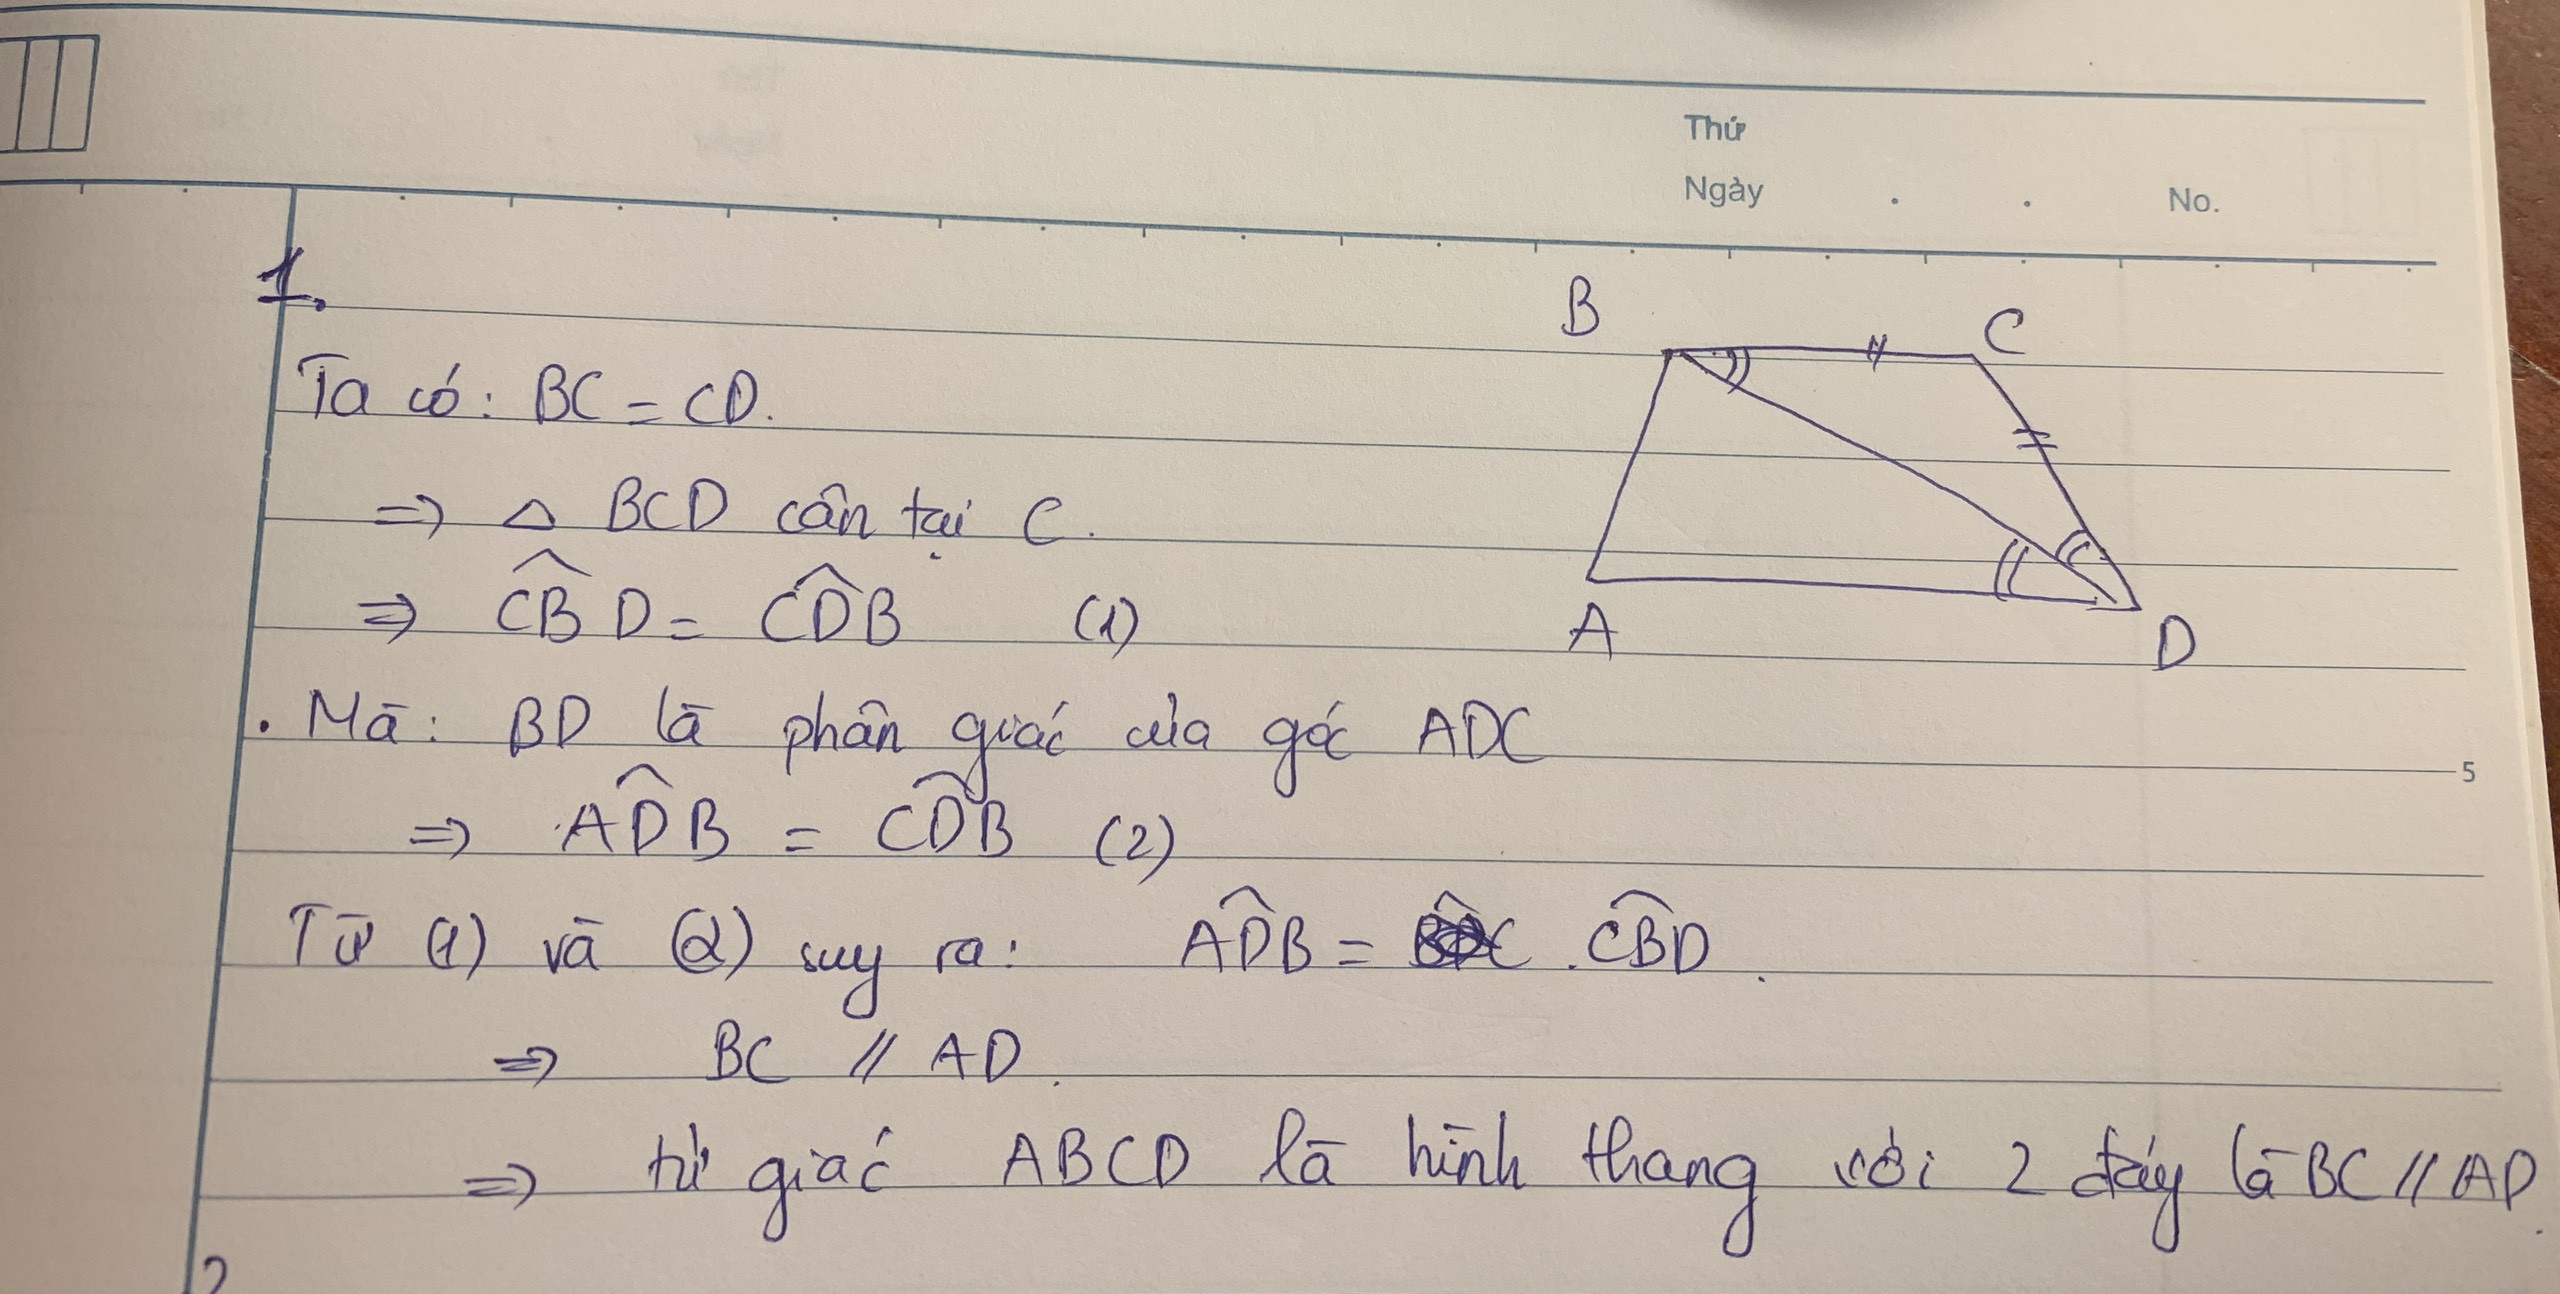 Thứ
Ngày . . No.
1.
B C
A D
Ta có: BC = CD.
=> △ BCD cân tại C.
=> CB̂D = CD̂B (1)
. Mà: BD là phân giác của góc ADC
5
=> AD̂B = CD̂B (2)
Từ (1) và (2) suy ra: AD̂B = CB̂D.
=> BC // AD.
=> tứ giác ABCD là hình thang với 2 đáy là BC // AD.
2